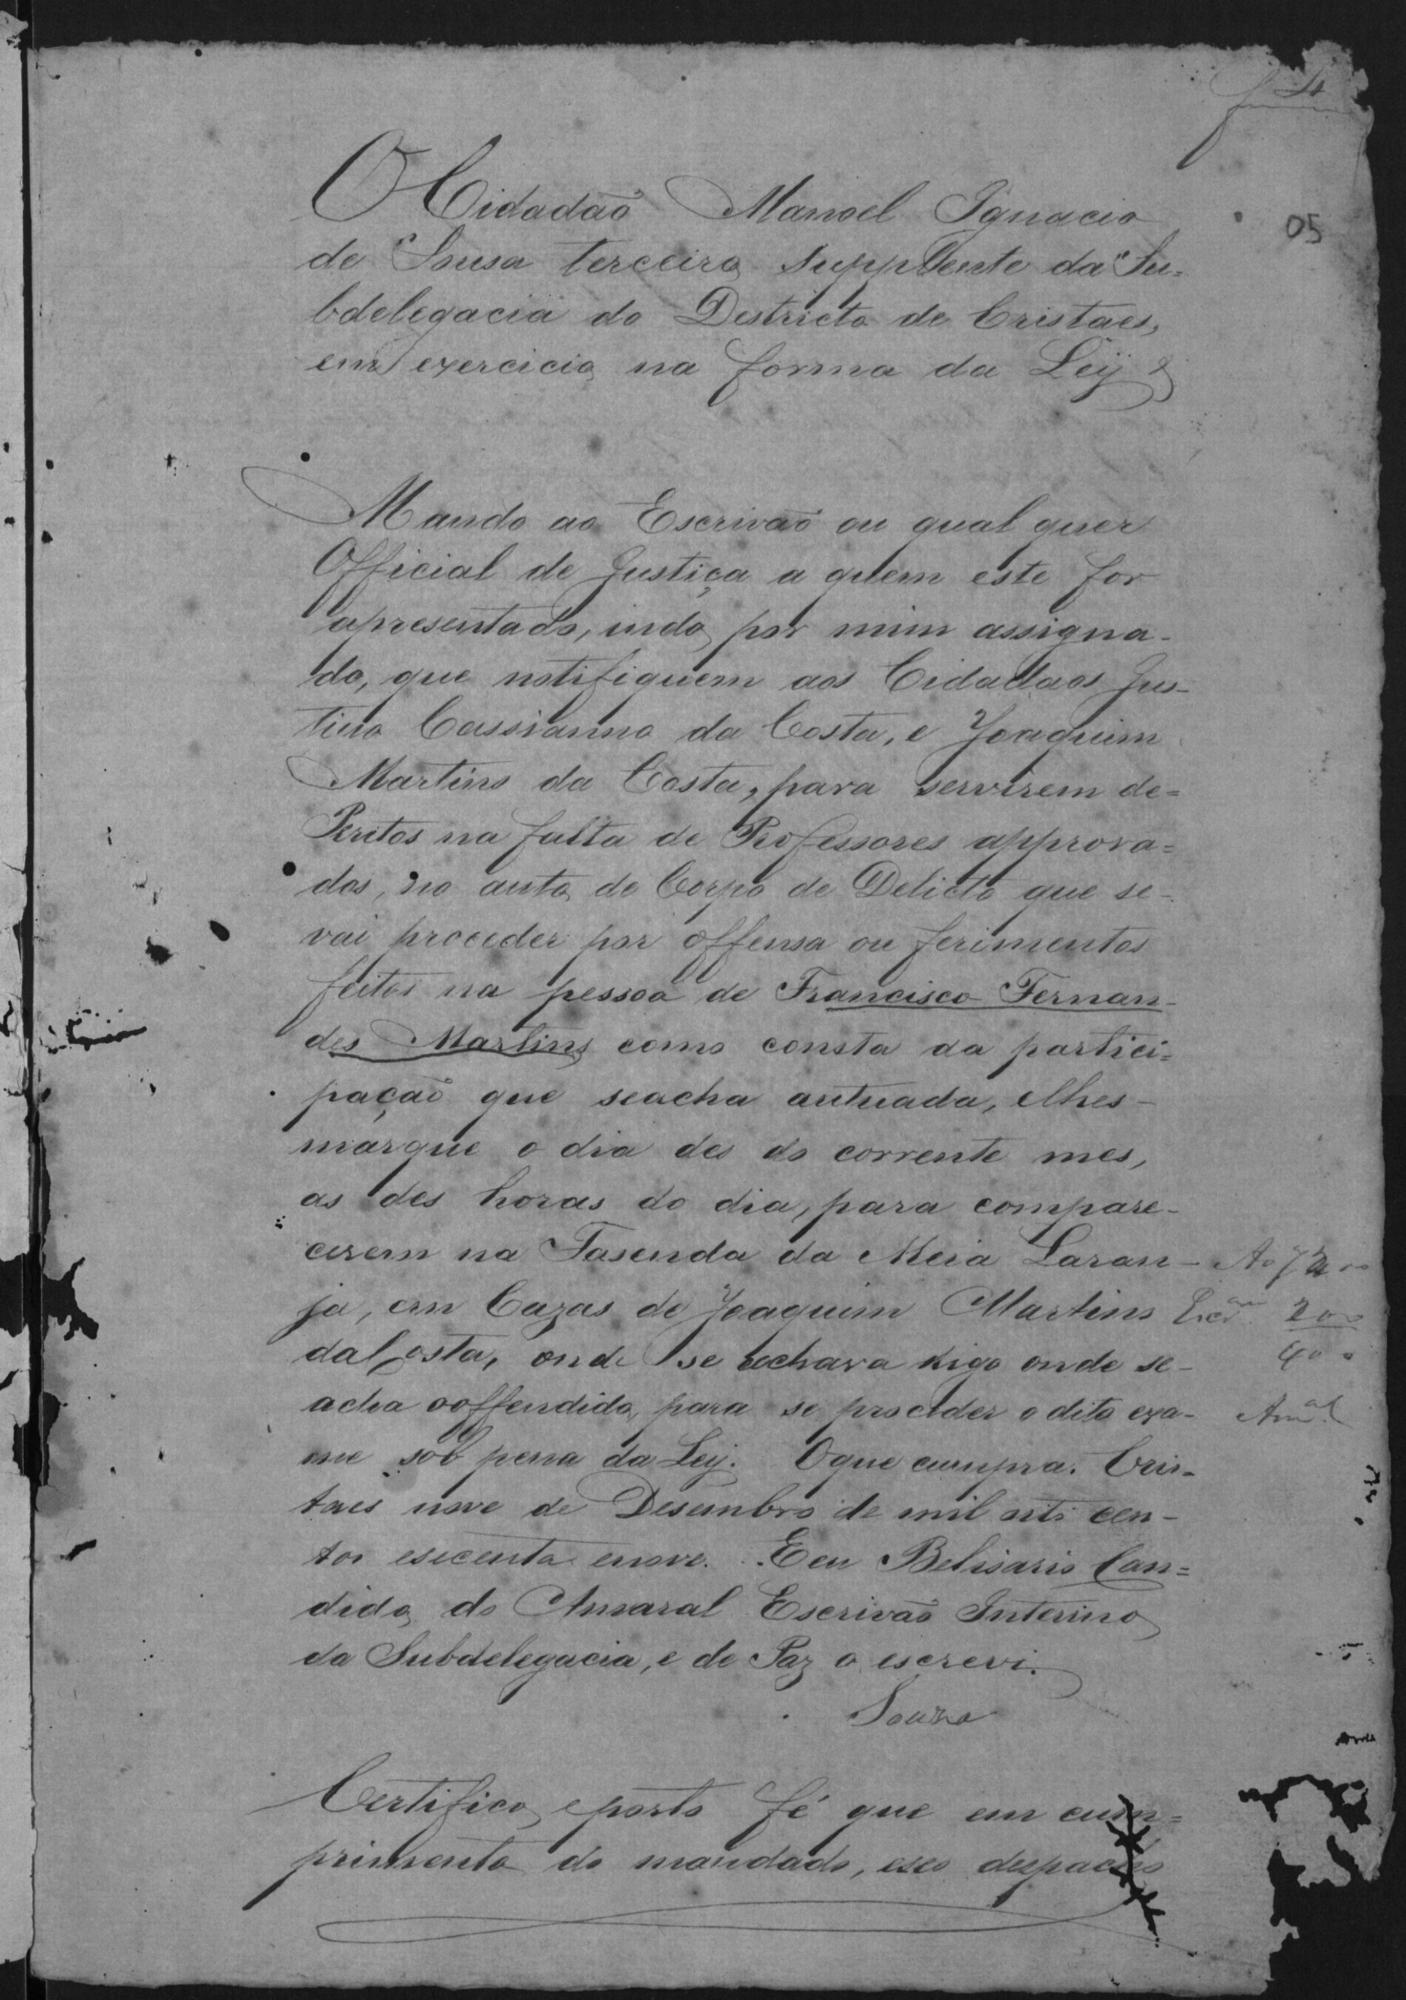 4
05
O Cidadão Manoel Ignacio
de Sousa terceiro Supplente da Su=
bdelegacia do Districto de Cristaes,
em exercicio na forma da Ley &
Mando ao Escrivão ou qual quer
Official de Justiça a quem este for
apresentado, indo por mim assigna-
do, que notifiquem aos Cidadaos Jus-
tino Cassianno da Costa, e Joaquim
Martins da Costa, para servirem de=
Peritos na falta de Professores approva=
dos, no auto de Corpo de Delicto que se-
vai proceder por offensa ou ferimentos
feitos na pessoa de Francisco Fernan-
des Martins como consta da partici=
pação que seacha autuada, elhes-
marque o dia des do corrente mes,
as des horas do dia, para compare-
cerem na Fasenda da Meia Laran-
ja, em Cazas de Joaquim Martins
daCosta, onde se achava digo onde se-
acha ooffendido, para se proceder o dito exa-
me sob pena da Ley. Oque cumpra. Cris-
taes nove de Desembro de mil oito cen-
tos esecenta enove. Eeu Belisario Can=
dido do Amaral Escrivão Interino
da Subdelegacia, e de Paz o escrevi.
Souza
Certifico, eporto fé que em cum=
primento do mandado, eseo despacho
200
400
Am.al